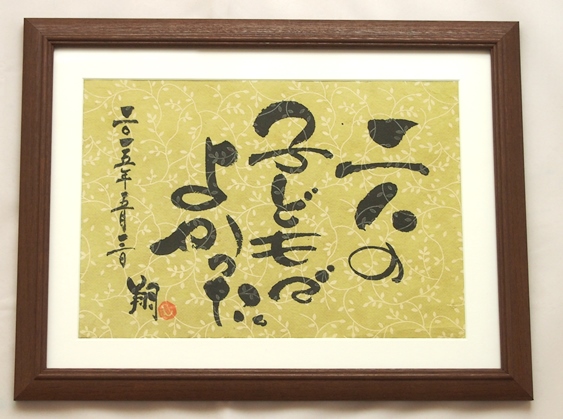 二人の
子どもで
よかった
二〇一五年五月三日
翔